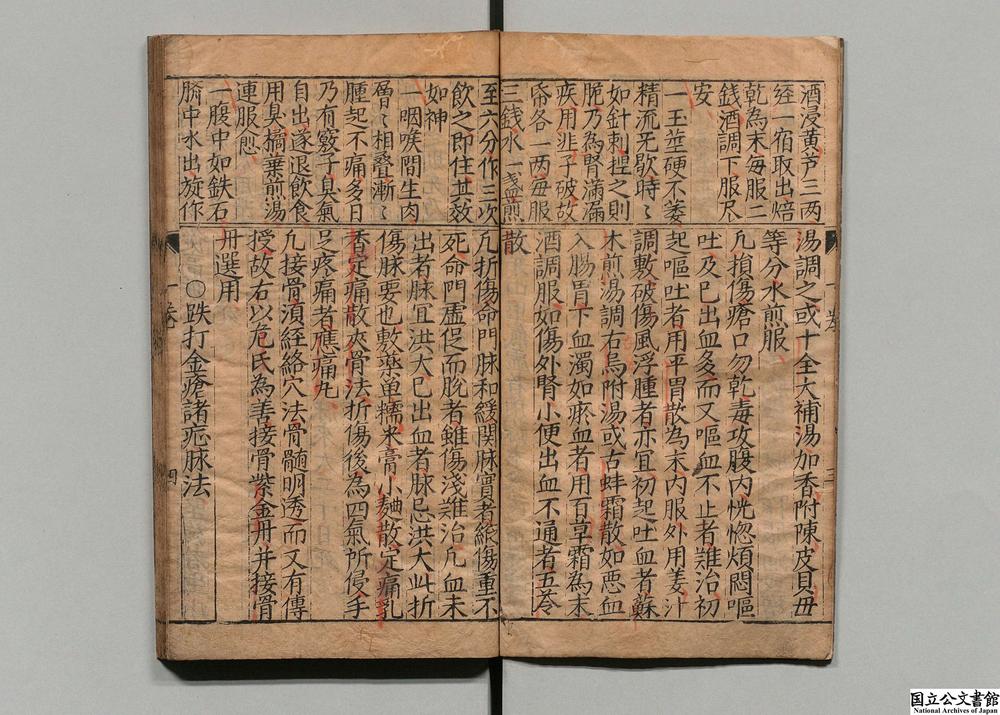 酒浸黄芦三两
經一宿取出焙
乾為末毎服二
錢酒調下服尽
安
一玉莖硬不萎
精流无歇時〻
如針刺揑之則
脆乃為腎滿漏
疾用韭子破故
帋各一两毎服
三錢水一盞煎
湯調之或十全大補湯加香附陳皮貝毋
等分水煎服
凢損傷瘡口勿乾毒攻腹内恍惚煩悶嘔
吐及已出血多而又嘔血不止者難治初
起嘔吐者用平胃散為末内服外用姜汁
調敷破傷風浮腫者亦宜初起吐血者蘇
木煎湯調右烏附湯或古蚌霜散如悪血
入腸胃下血濁如瘀血者用百草霜為末
酒調服如傷外腎小便出血不通者五苓
散
至六分作三次
飲之即住其效
如神
一咽喉間生肉
曾〻相叠漸〻
腫起不痛多日
乃有竅子臭氣
自出遂退飲食
用臭橘葉煎湯
連服愈
一腹中如鉄石
臍中水出旋作
凢折傷命門脉和緩関脉實者縱傷重不
死命門虚促而脱者雖傷淺難治凢血未
出者脉宜洪大已出血者脉忌洪大此折
傷脉要也敷藥单糯米膏小麯散定痛乳
香定痛散夾骨法折傷後為四氣所侵手
足疼痛者應痛丸
凢接骨須経絡穴法骨髓明透而又有傳
授故右以危氏為善接骨紫金丹并接骨
丹選用
○跌打金瘡諸疕脉法
国立公文書館
National Archives of Japan